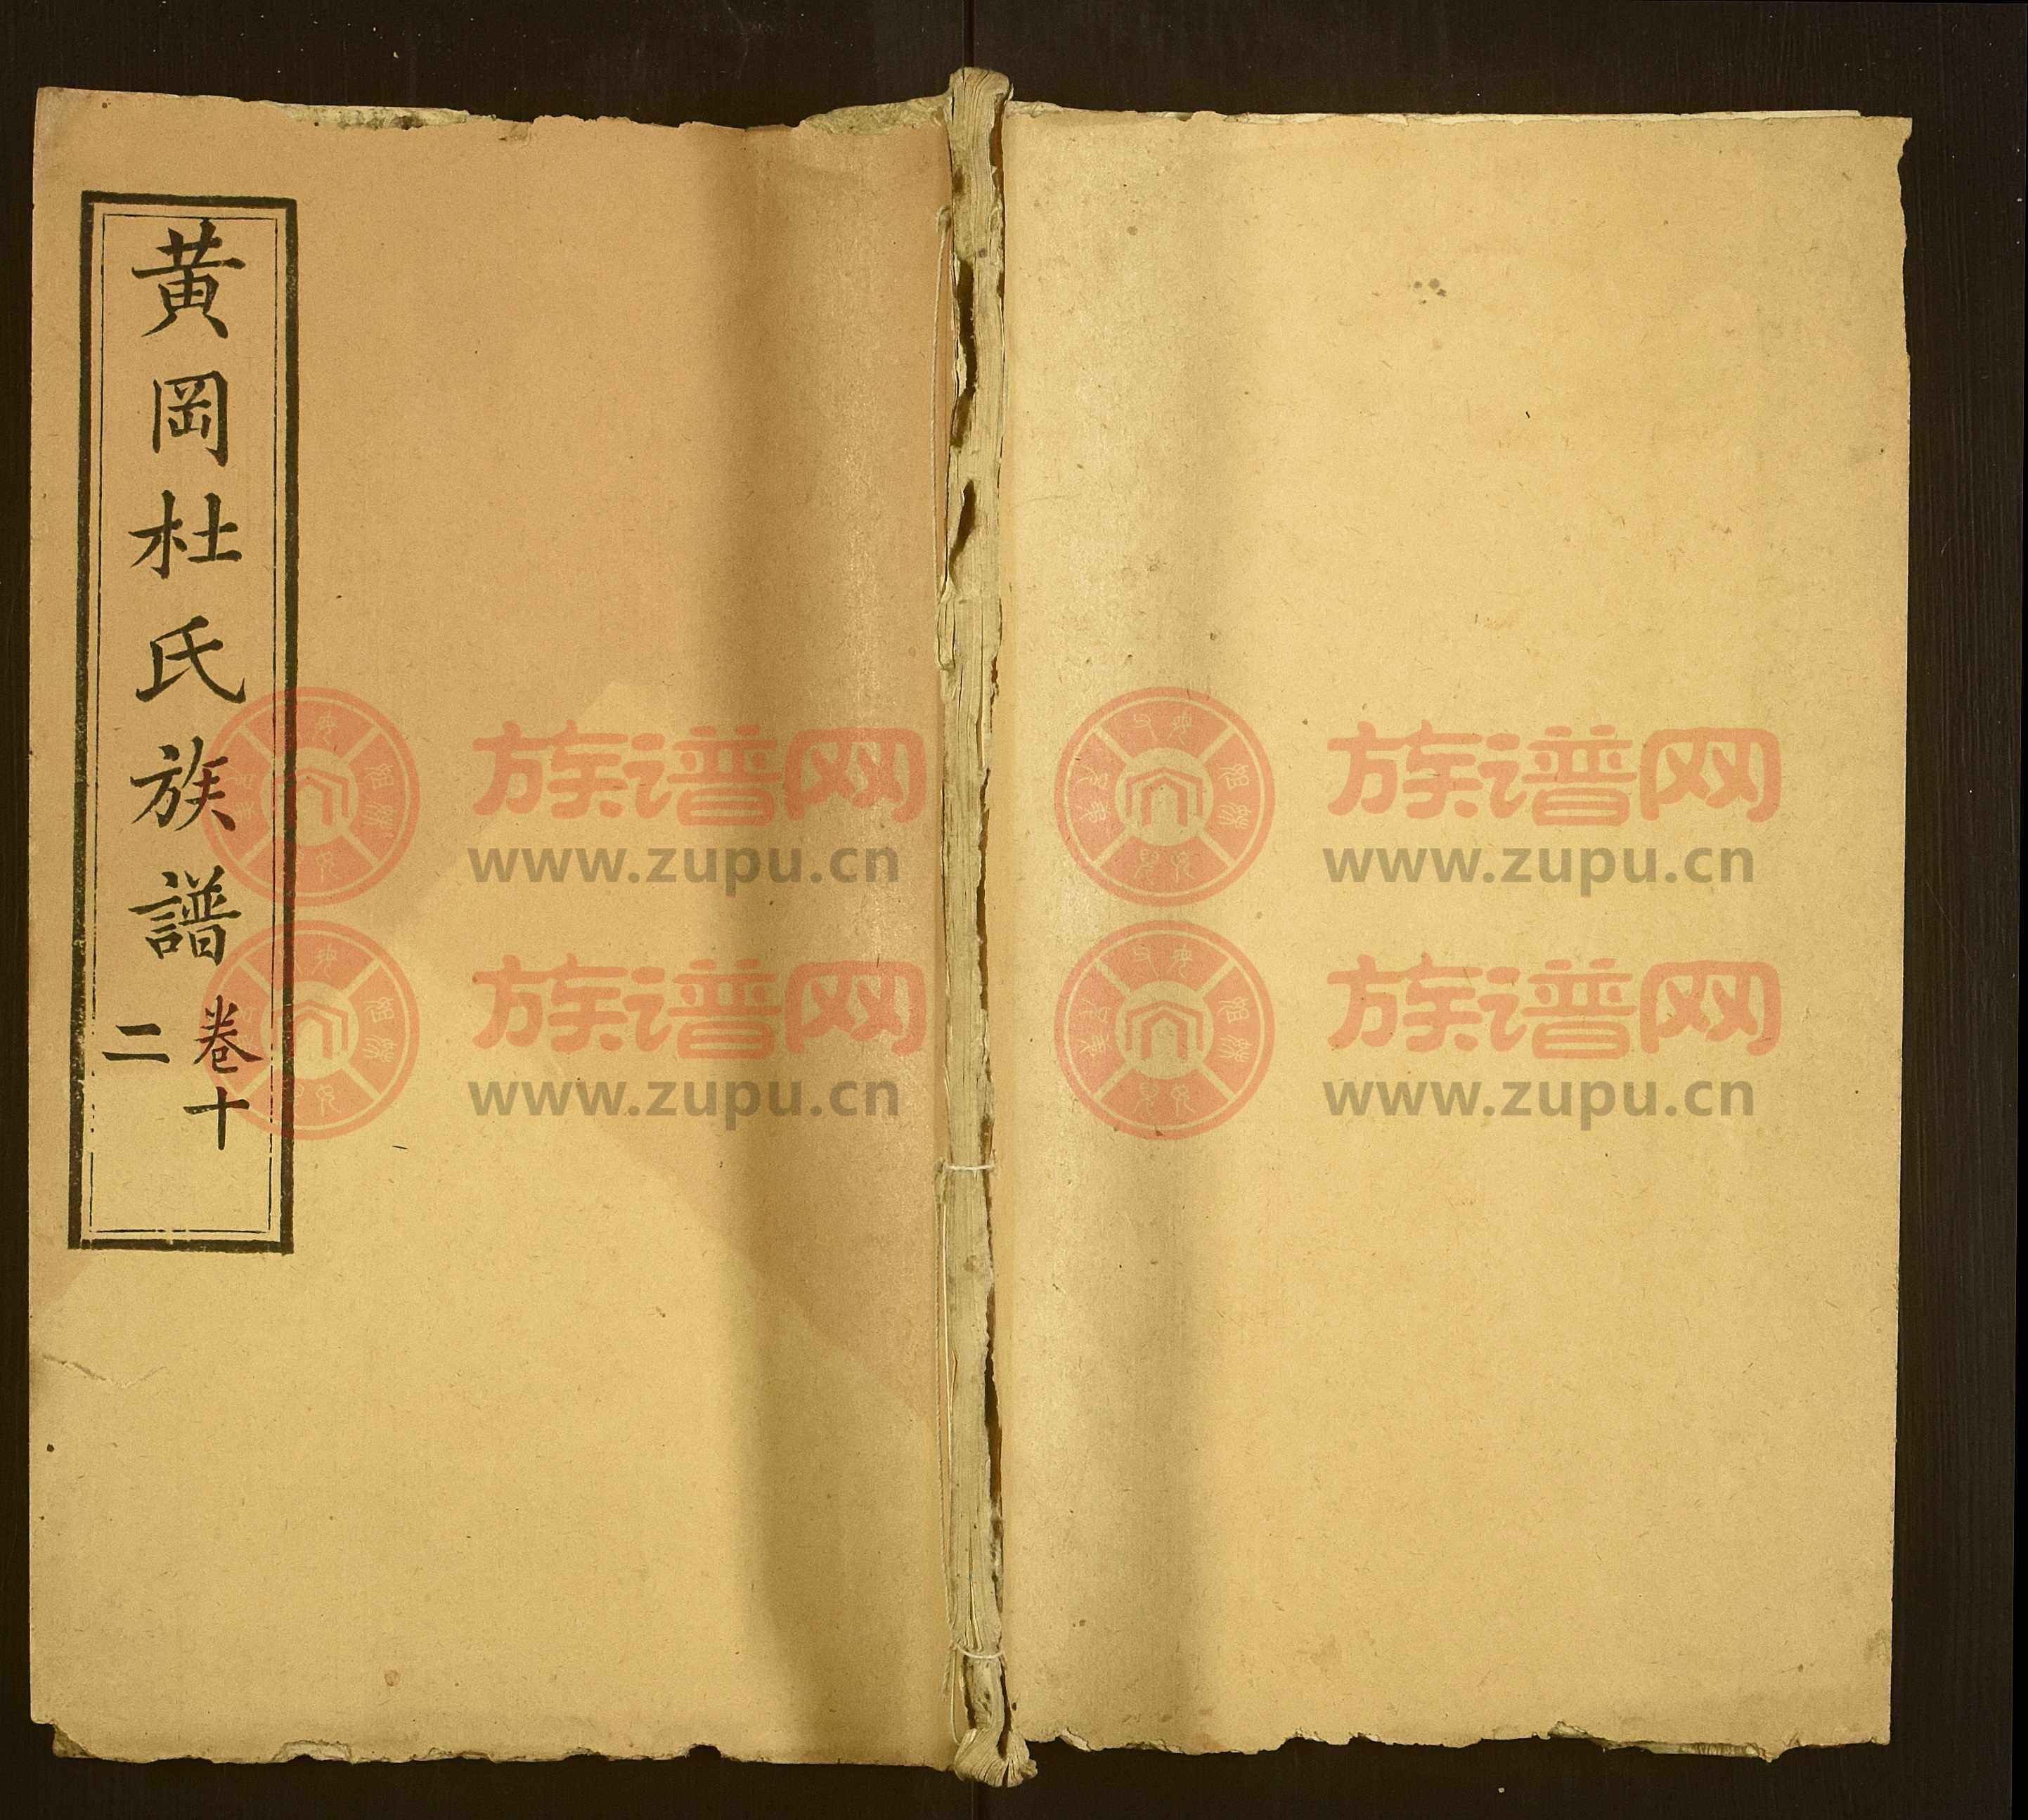 黄岡杜氏族譜
卷十
二
族谱网
www.zupu.cn
族谱网
www.zupu.cn
族谱网
www.zupu.cn
族谱网
www.zupu.cn